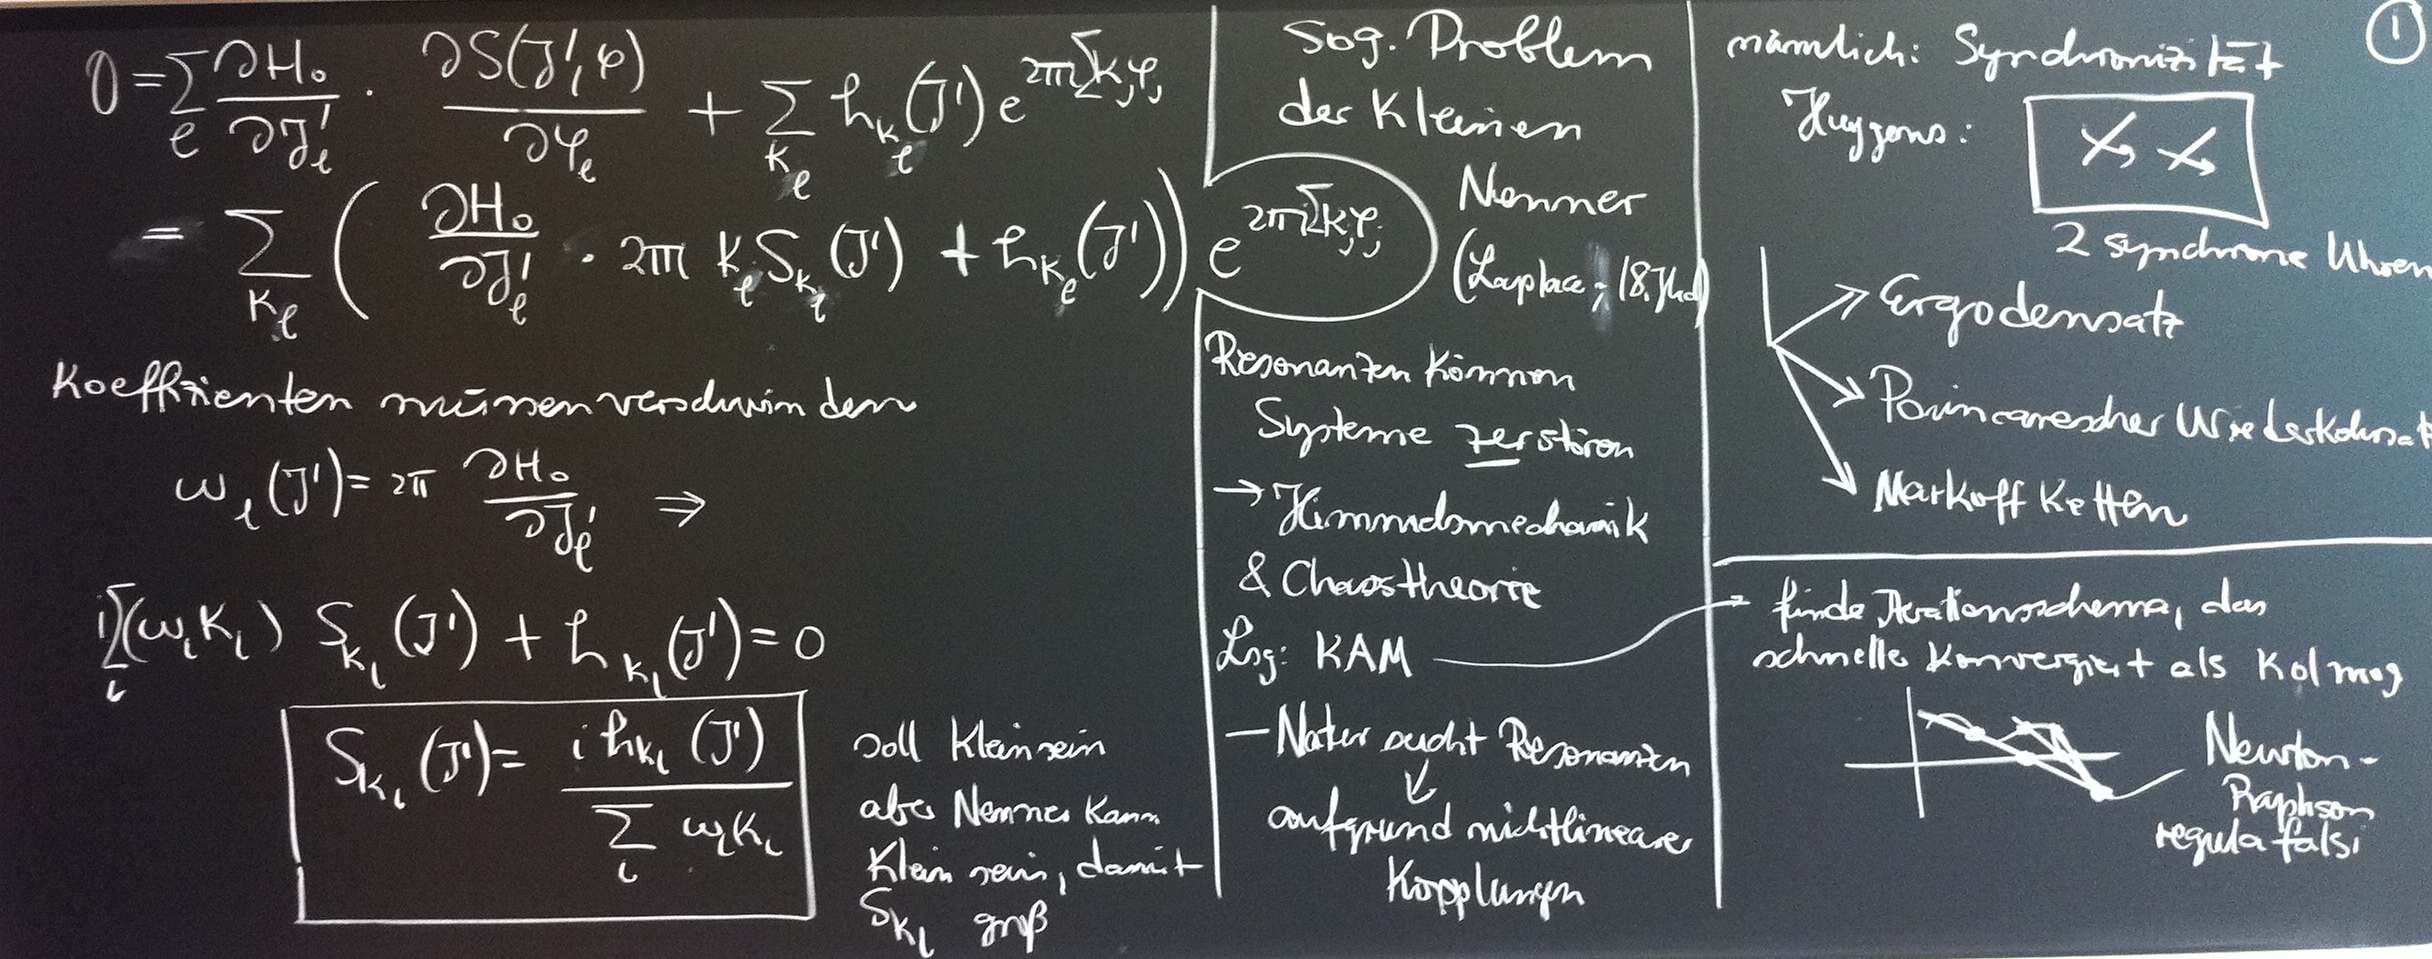 0 = Σ_l ∂H₀/∂J'_l · ∂S(J',φ)/∂φ_l + Σ_{k_l} h_{k_l}(J') e^{2πi Σ k_j φ_j}
= Σ_{k_l} ( ∂H₀/∂J'_l · 2πi k_l S_{k_l}(J') + h_{k_l}(J') ) e^{2πi Σ k_j φ_j}
Koeffizienten müssen verschwinden
ω_l(J') = 2π ∂H₀/∂J'_l ⇒
i Σ_l (ω_l k_l) S_{k_l}(J') + h_{k_l}(J') = 0
S_{k_l}(J') = i h_{k_l}(J') / Σ_l ω_l k_l
soll klein sein
aber Nenner kann
klein sein, damit
S_{k_l} groß
Sog. Problem
der kleinen
Nenner
(Laplace, 18. Jhd)
Resonanzen können
Systeme zerstören
→ Himmelsmechanik
& Chaostheorie
Lsg: KAM
– Natur sucht Resonanzen
aufgrund nichtlinearer
Kopplungen
①
nämlich: Synchronizität
Huygens:
2 synchrone Uhren
Ergodensatz
Poincarescher Wiederkehrsat
Markoff Ketten
finde Iterationsschema, das
schneller konvergiert als Kolmog
Newton-
Raphson
regula falsi